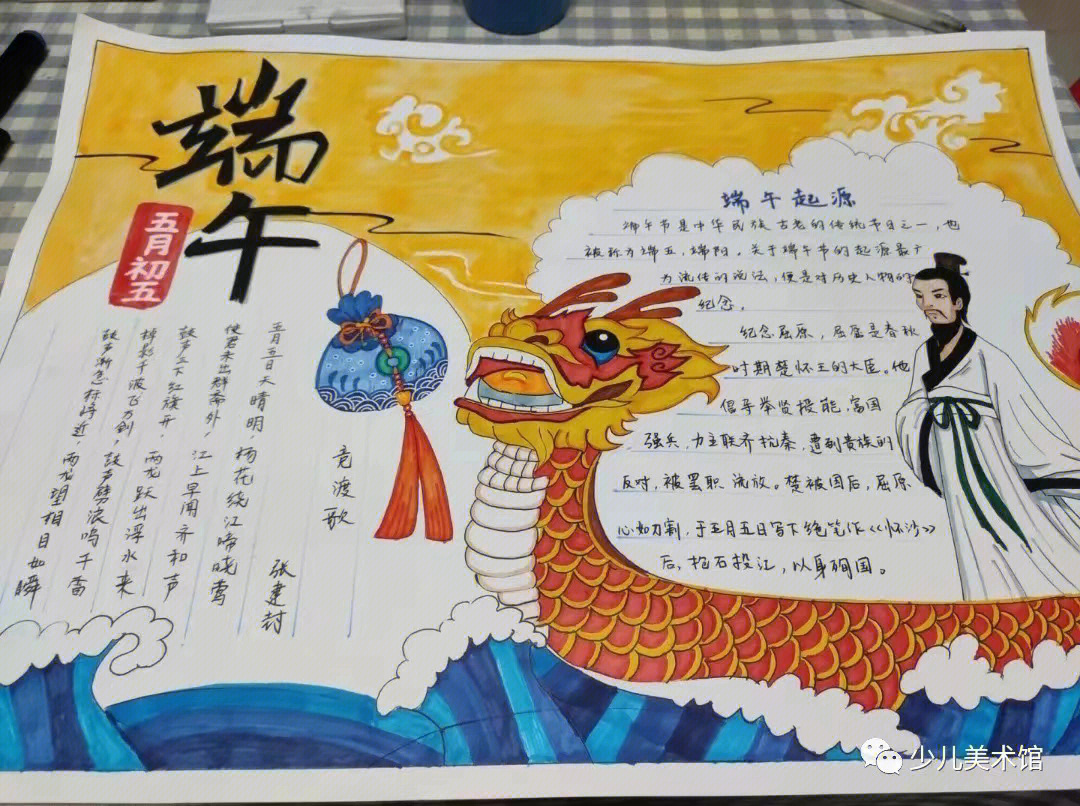 端午
五月初五
竞渡歌
张建封
五月五日天晴明，杨花绕江啼晓莺
使君未出郡斋外，江上早闻齐和声
鼓声三下红旗开，两龙跃出浮水来
棹影斡波飞万剑，鼓声劈浪鸣千雷
鼓声渐急标将近，两龙望标目如瞬
端午起源
端午节是中华民族古老的传统节日之一，也
被称为端五，端阳。关于端午节的起源最广
为流传的说法，便是对历史人物的
纪念。
纪念屈原，屈原是春秋
时期楚怀王的大臣。他
倡导举贤授能，富国
强兵，力主联齐抗秦，遭到贵族的
反对，被罢职流放。楚被困后，屈原
心如刀割，于五月五日写下绝笔作《怀沙》
后，抱石投江，以身殉国。
少儿美术馆